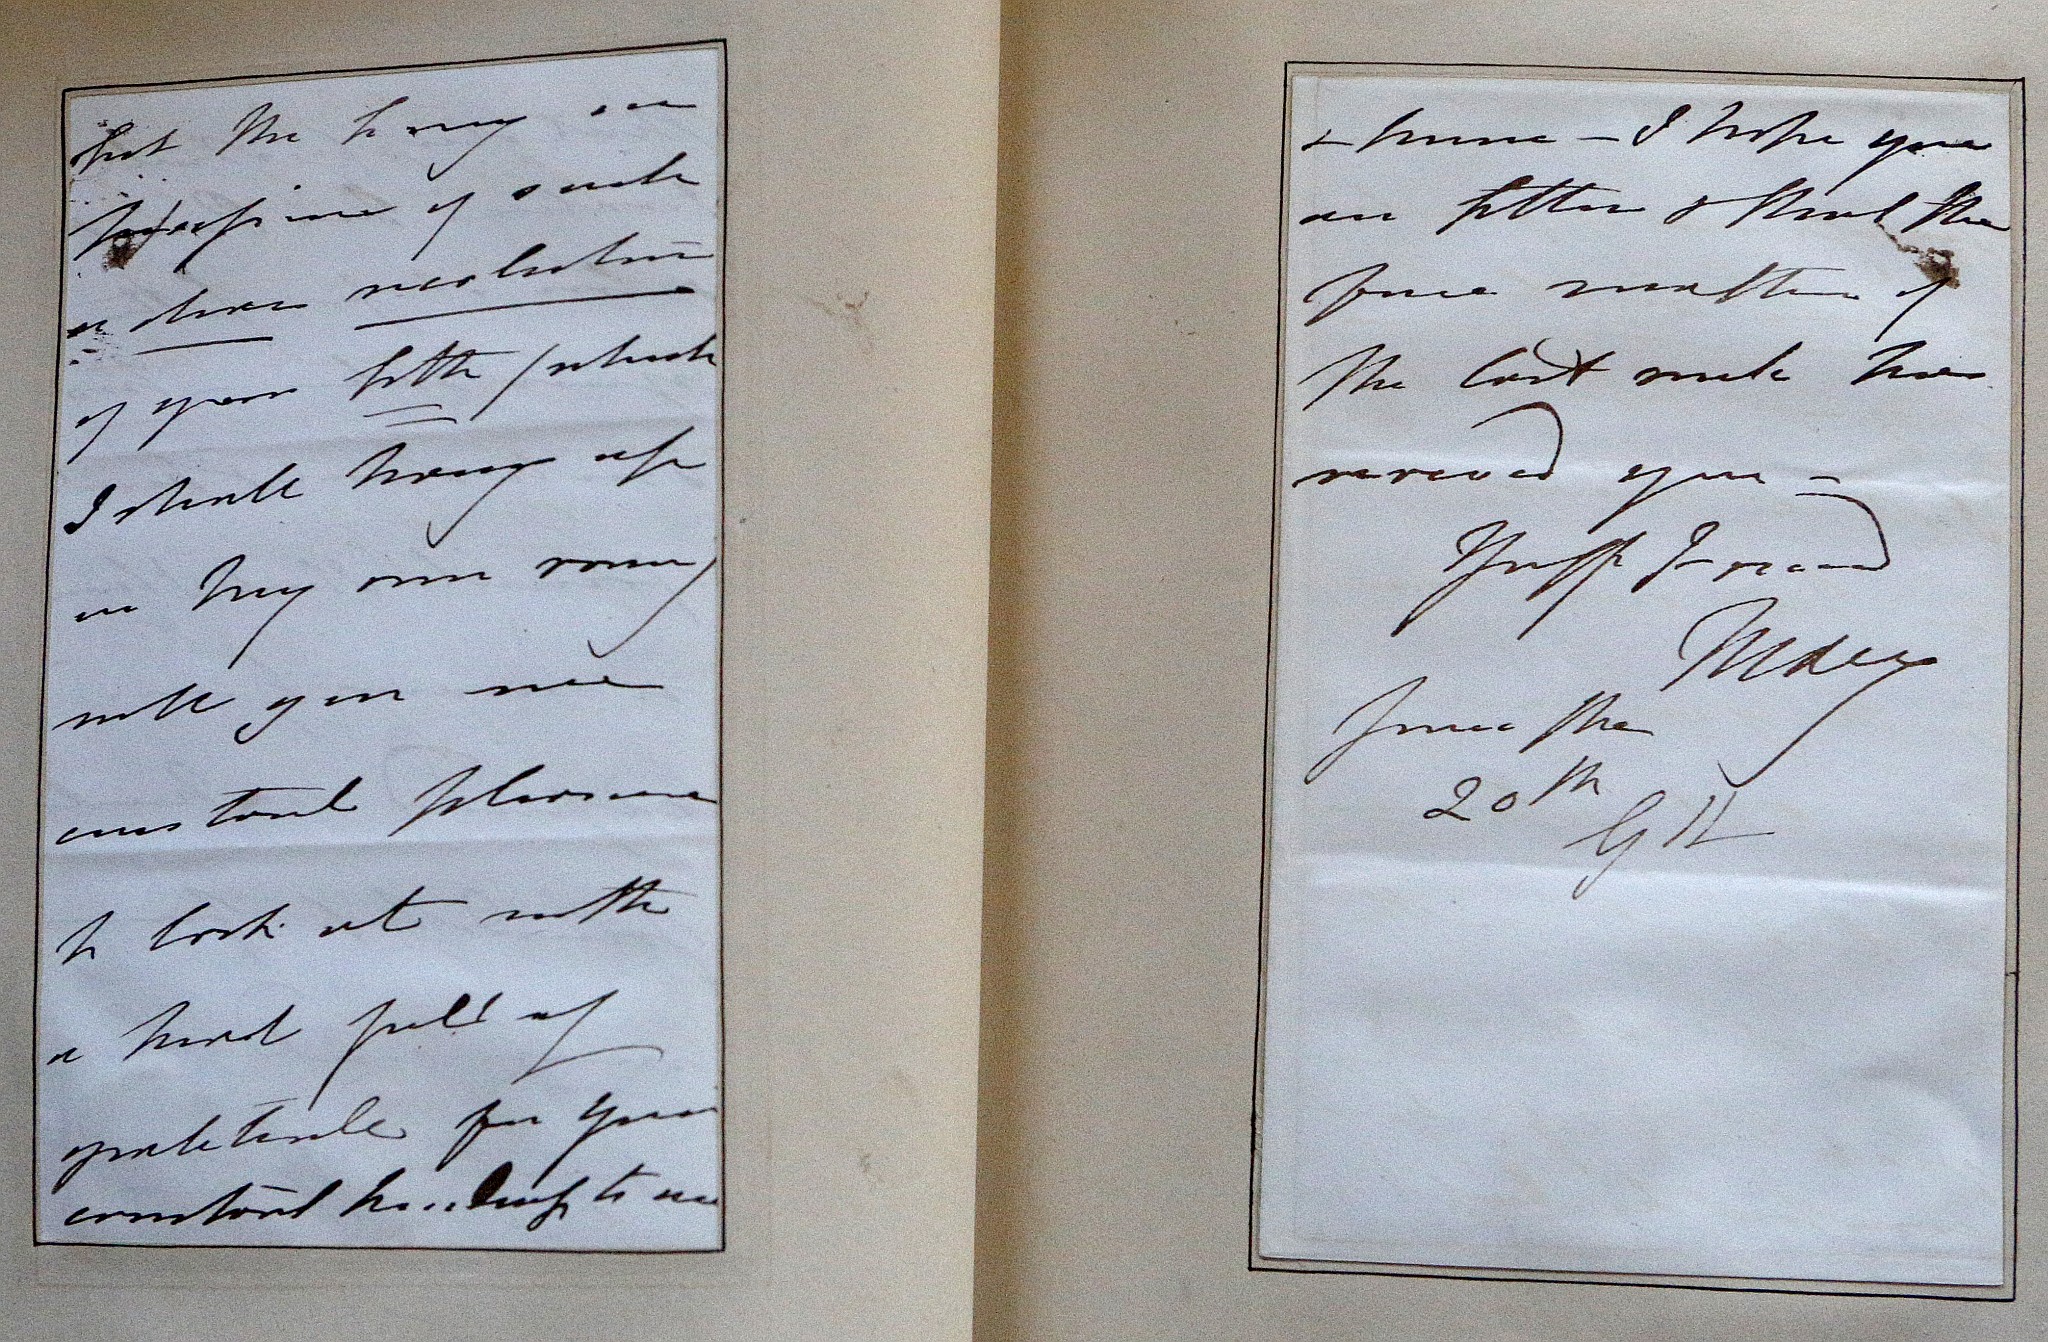 but the being in
possession of such
a dear resolution
of your little (which
I shall hang up
in my own room)
will give me
constant pleasure
to look at with
a heart full of
gratitude for your
constant kindness to me
& mine – I hope you
are better & that the
fine weather of
the last week has
revived you –
Yr aff. Friend
Mary
June the
20th